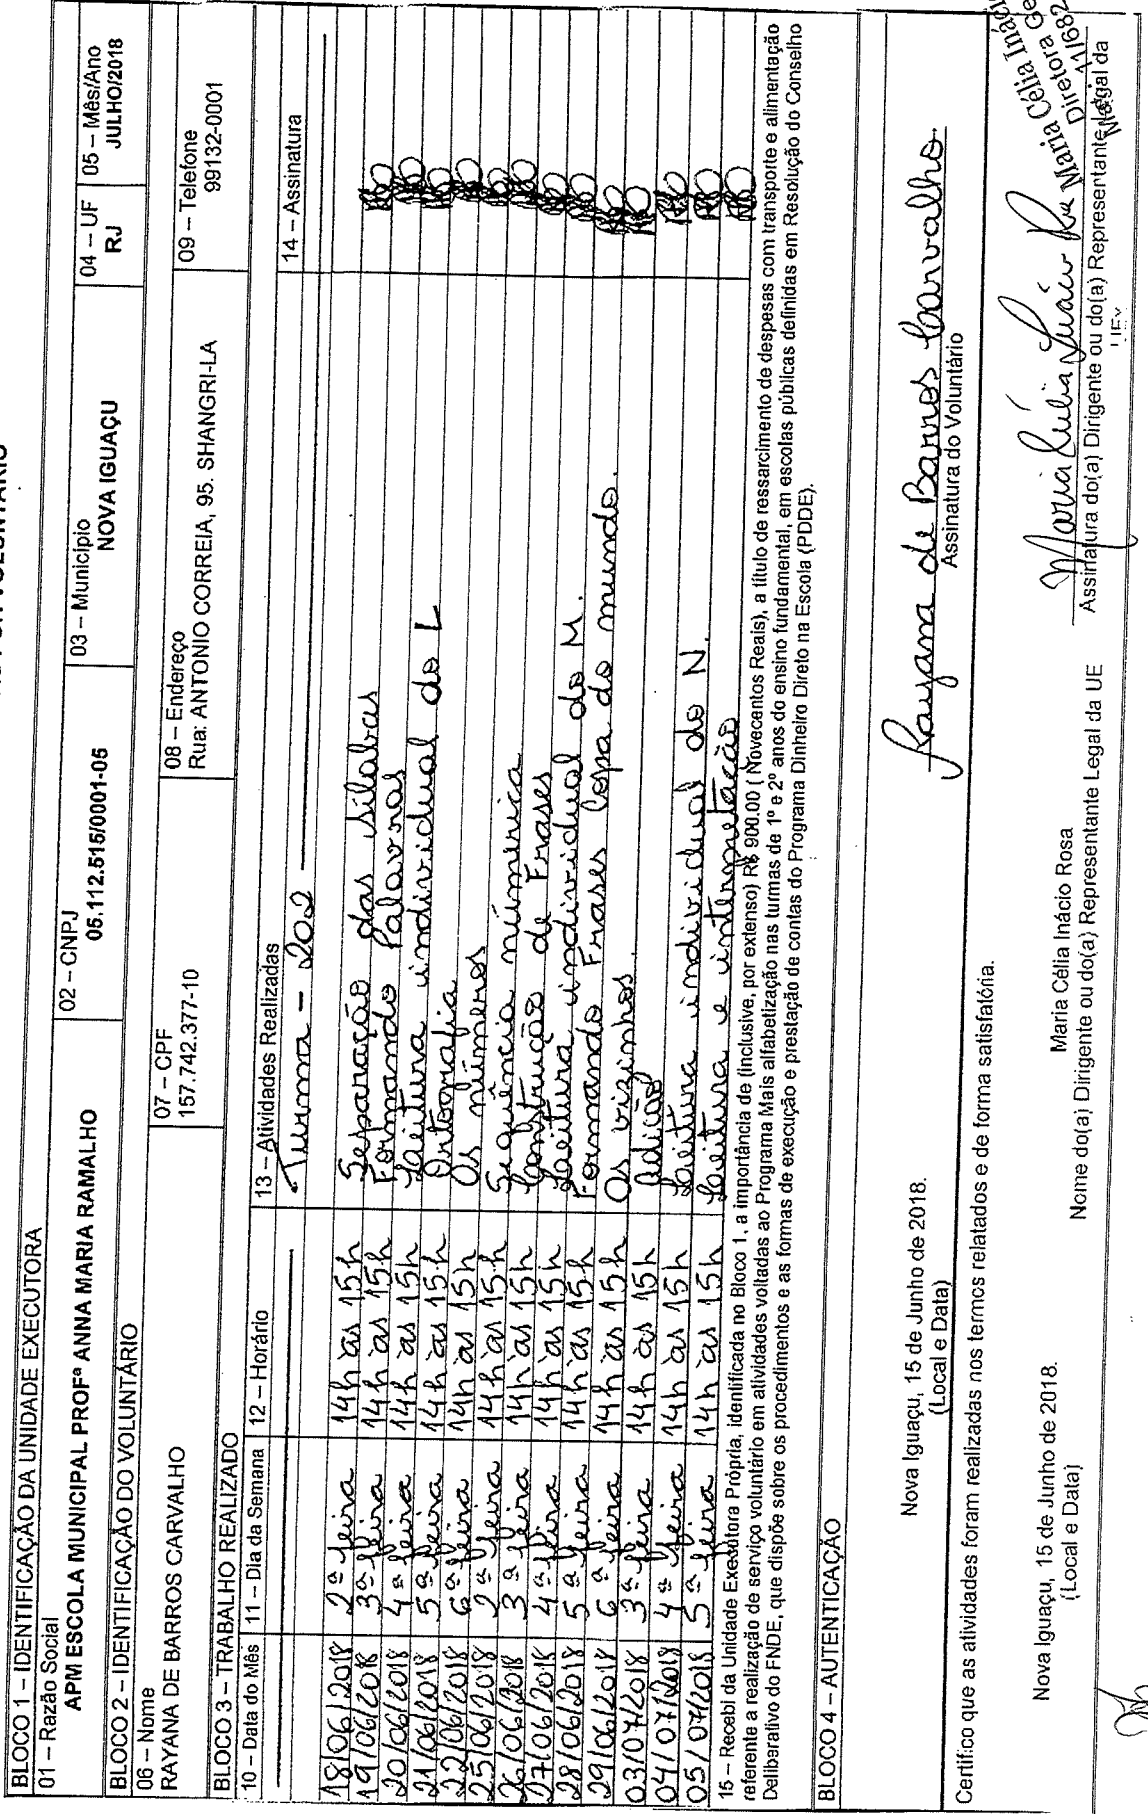 BLOCO 1 – IDENTIFICAÇÃO DA UNIDADE EXECUTORA
01 – Razão Social
APM ESCOLA MUNICIPAL PROFª ANNA MARIA RAMALHO
02 – CNPJ
05.112.515/0001-05
03 – Município
NOVA IGUAÇU
04 – UF
RJ
05 – Mês/Ano
JULHO/2018
BLOCO 2 – IDENTIFICAÇÃO DO VOLUNTÁRIO
06 – Nome
RAYANA DE BARROS CARVALHO
07 – CPF
157.742.377-10
08 – Endereço
Rua: ANTONIO CORREIA, 95. SHANGRI-LA
09 – Telefone
99132-0001
BLOCO 3 – TRABALHO REALIZADO
10 – Data do Mês 11 – Dia da Semana 12 – Horário 13 – Atividades Realizadas 14 – Assinatura
Turma – 202
18/06/2018 2ª feira 14h às 15h Separação das silabas
19/06/2018 3ª feira 14h às 15h Formando Palavras
20/06/2018 4ª feira 14h as 15h Leitura individual do L
21/06/2018 5ª feira 14h às 15h Ortografia
22/06/2018 6ª feira 14h às 15h Os números
25/06/2018 2ª feira 14h às 15h Sequência númerica
26/06/2018 3ª feira 14h às 15h Construção de Frases
27/06/2018 4ª feira 14h às 15h Leitura individual do M.
28/06/2018 5ª feira 14h às 15h Formando Frases Copa do mundo.
29/06/2018 6ª feira 14h às 15h Os vizinhos.
03/07/2018 3ª feira 14h às 15h Adição
04/07/2018 4ª feira 14h às 15h Leitura individual do N.
05/07/2018 5ª feira 14h as 15h Leitura e interpretação
15 – Recebi da Unidade Executora Própria, identificada no Bloco 1, a importância de (inclusive, por extenso) R$ 900.00 ( Novecentos Reais), a título de ressarcimento de despesas com transporte e alimentação
referente a realização de serviço voluntário em atividades voltadas ao Programa Mais alfabetização nas turmas de 1º e 2º anos do ensino fundamental, em escolas públicas definidas em Resolução do Conselho
Deliberativo do FNDE, que dispõe sobre os procedimentos e as formas de execução e prestação de contas do Programa Dinheiro Direto na Escola (PDDE).
BLOCO 4 – AUTENTICAÇÃO
Nova Iguaçu, 15 de Junho de 2018.
(Local e Data)
Rayana de Barros Carvalho.
Assinatura do Voluntário
Certifico que as atividades foram realizadas nos termos relatados e de forma satisfatória.
Nova Iguaçu, 15 de Junho de 2018.
(Local e Data)
Maria Célia Inácio Rosa
Nome do(a) Dirigente ou do(a) Representante Legal da UE
Maria Célia Inácio
Assinatura do(a) Dirigente ou do(a) Representante Legal da
UEx
Maria Célia Inácio
Diretora
11/682